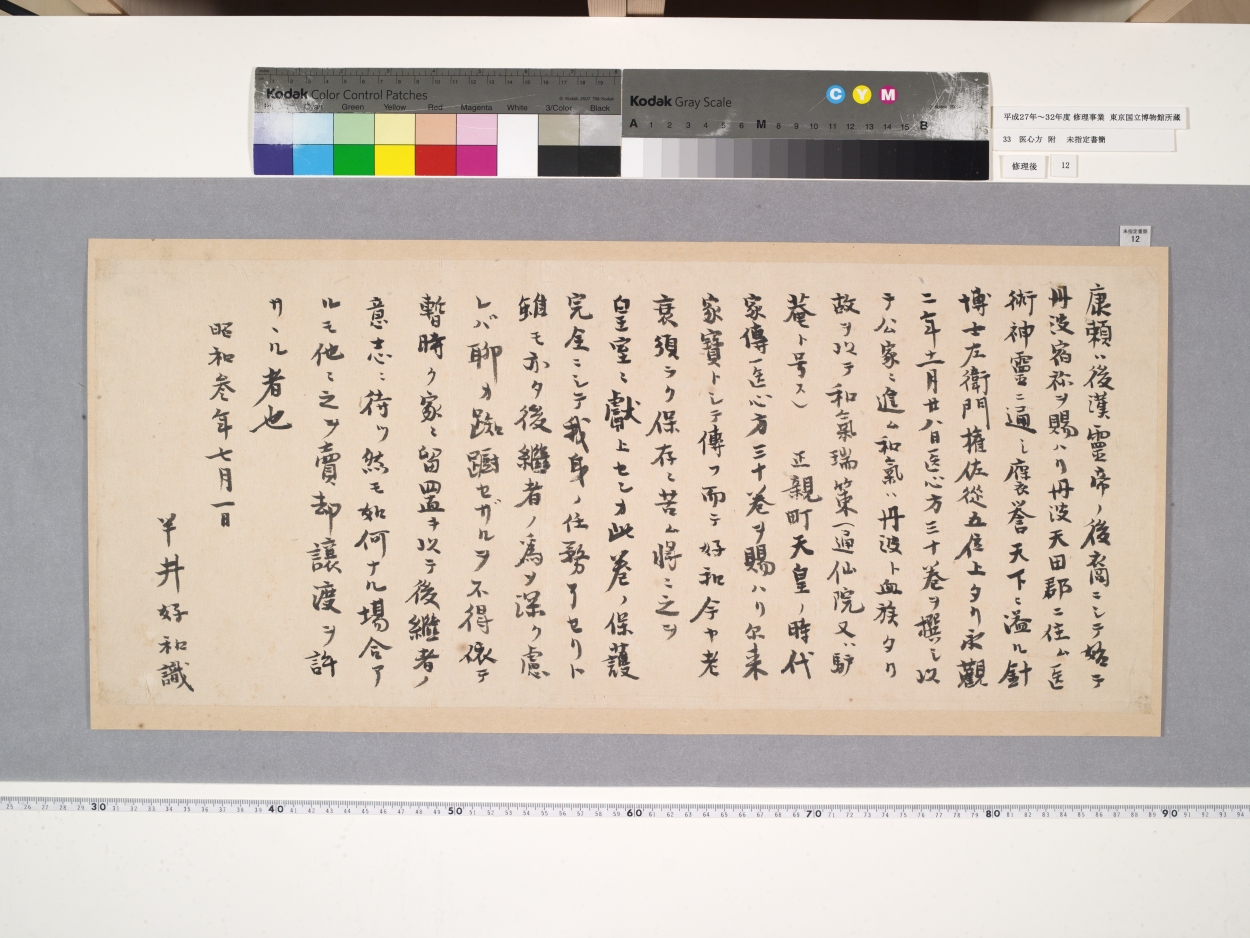 Kodak Color Control Patches
Green Yellow Red Magenta White 3/Color Black
Kodak Gray Scale
C Y M
A 1 2 3 4 5 6 M 8 9 10 11 12 13 14 15 B
平成27年〜32年度 修理事業 東京国立博物館所蔵
33 医心方 附 未指定書簡
修理後 12
未指定書簡
12
康頼ハ後漢霊帝ノ後裔ニシテ始テ
丹波宿祢ヲ賜ハリ丹波天田郡ニ住ム医
術神霊ニ通シ廕誉天下ニ溢ル針
博士左衛門権佐従五位上タリ永観
二年十一月廿八日医心方三十巻ヲ撰シ以
テ公家ニ進ム和氣ハ丹波ト血族タリ
故ヲ以テ和氣瑞策(通仙院又ハ驢
菴ト号ス) 正親町天皇ノ時代
家傳医心方三十巻ヲ賜ハリ尓来
家寶トシテ傳フ而テ好和今ヤ老
衰須ラク保存ニ苦ム将ニ之ヲ
皇室ニ獻上センカ此巻ノ保護
完全ニシテ我身ノ任務了セリト
雖モ亦タ後継者ノ為メ深ク慮
レバ聊カ踟蹰セザルヲ不得依テ
暫時ク家ニ留置キ以テ後継者ノ
意志ニ待ツ然モ如何ナル場合ア
ルモ他ニ之ヲ賣却譲渡ヲ許
サヽル者也
昭和参年七月一日
半井好和識
30 40 50 60 70 80 90